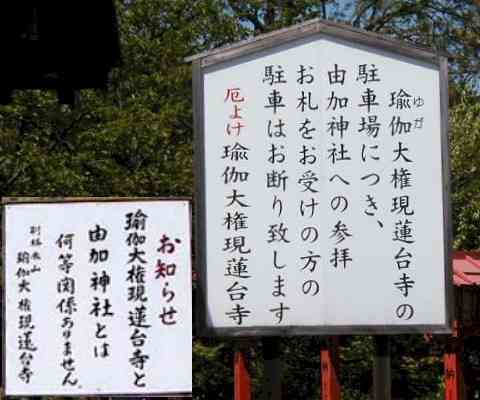 瑜伽大権現蓮台寺の
ゆが
駐車場につき、
由加神社への参拝
お札をお受けの方の
駐車はお断り致します
厄よけ 瑜伽大権現蓮台寺
お知らせ
瑜伽大権現蓮台寺と
由加神社とは
何等関係ありません。
瑜伽大権現蓮台寺